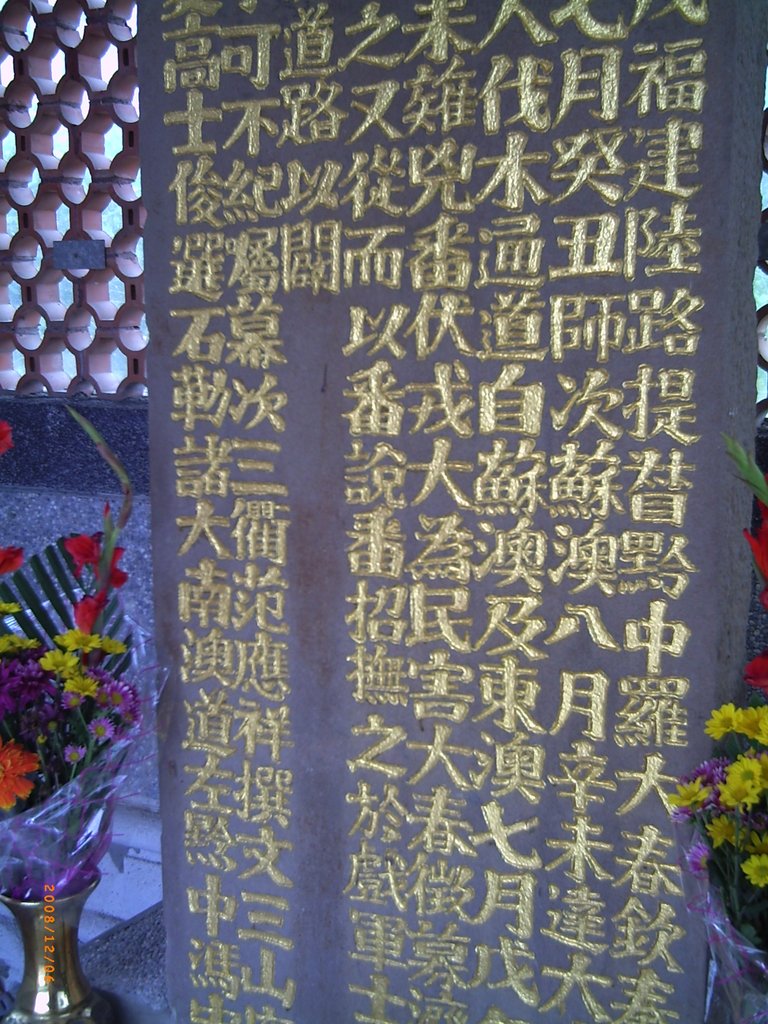 戊福建陸路提督黔中羅大春欽奉
七月癸丑師次蘇澳八月辛未達大
人伐木通道自蘇澳及東澳七月戊
未薙兇番伏戎大為民害大春徵募濟
之又從而以番說番招撫之於戲軍士
道路以闢
可不紀囑幕次三衢范應祥撰文三山
高士俊選石勒諸大南澳道左黔中馮
2008/12/06